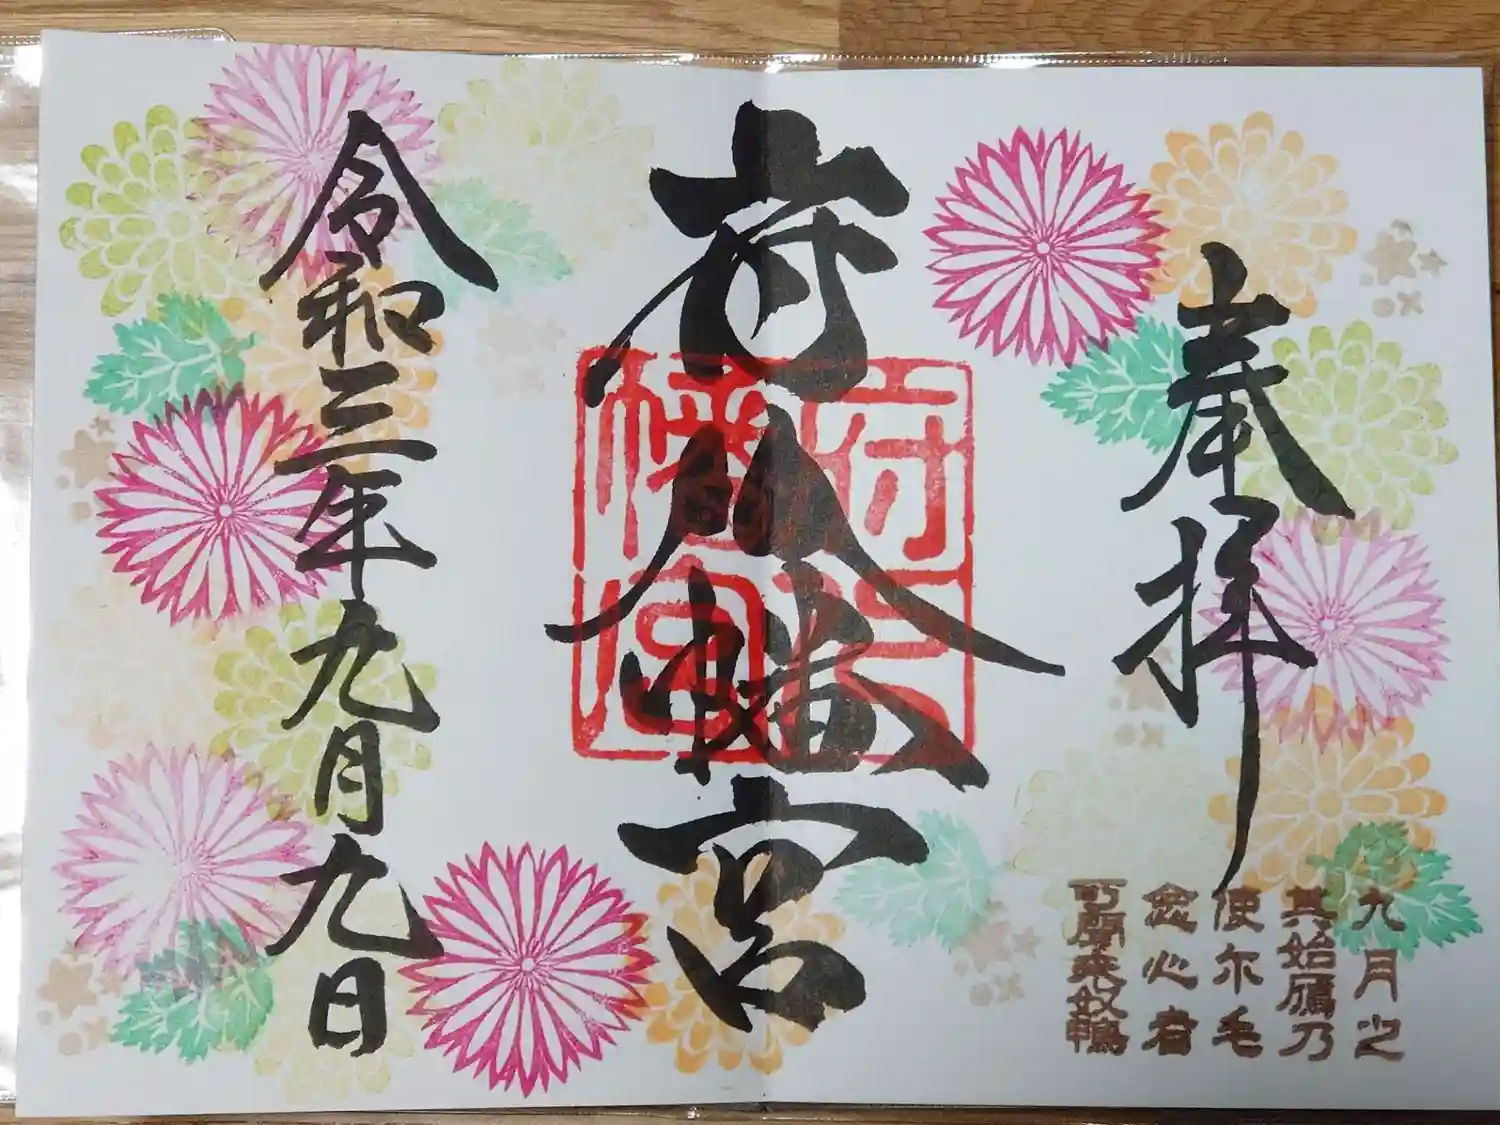 奉拝
府八幡宮
府八
幡宮
令和三年九月九日
九月之
其始鴈乃
使尓毛
念心者
所聞来奴鴨